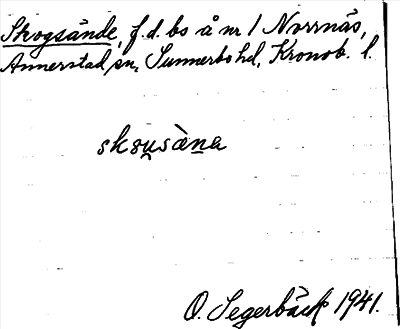 Skogsände, f.d. bs å nr 1 Norrnäs,
Annerstad sn, Sunnerbo hd, Kronob. l.
skou̯sàna
O. Segerbäck 1941.